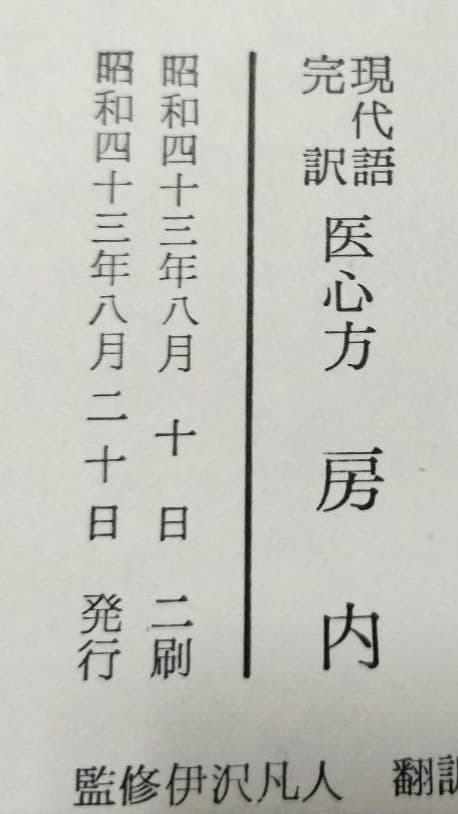 現代語
完訳
医心方 房内
昭和四十三年八月 十 日 二刷
昭和四十三年八月二十日 発行
監修伊沢凡人 翻訳